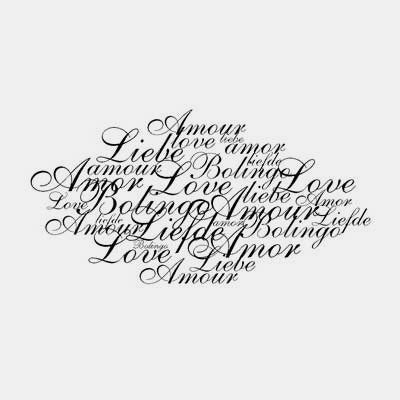 Amour
love liebe
Liebe amor
amour Bolingo liefde
Amor Love Love
Love Bolingo liebe Amor
Amour liefde Liefde amor Amour Bolingo Liefde
Love Bolingo Amor
Liebe
Amour